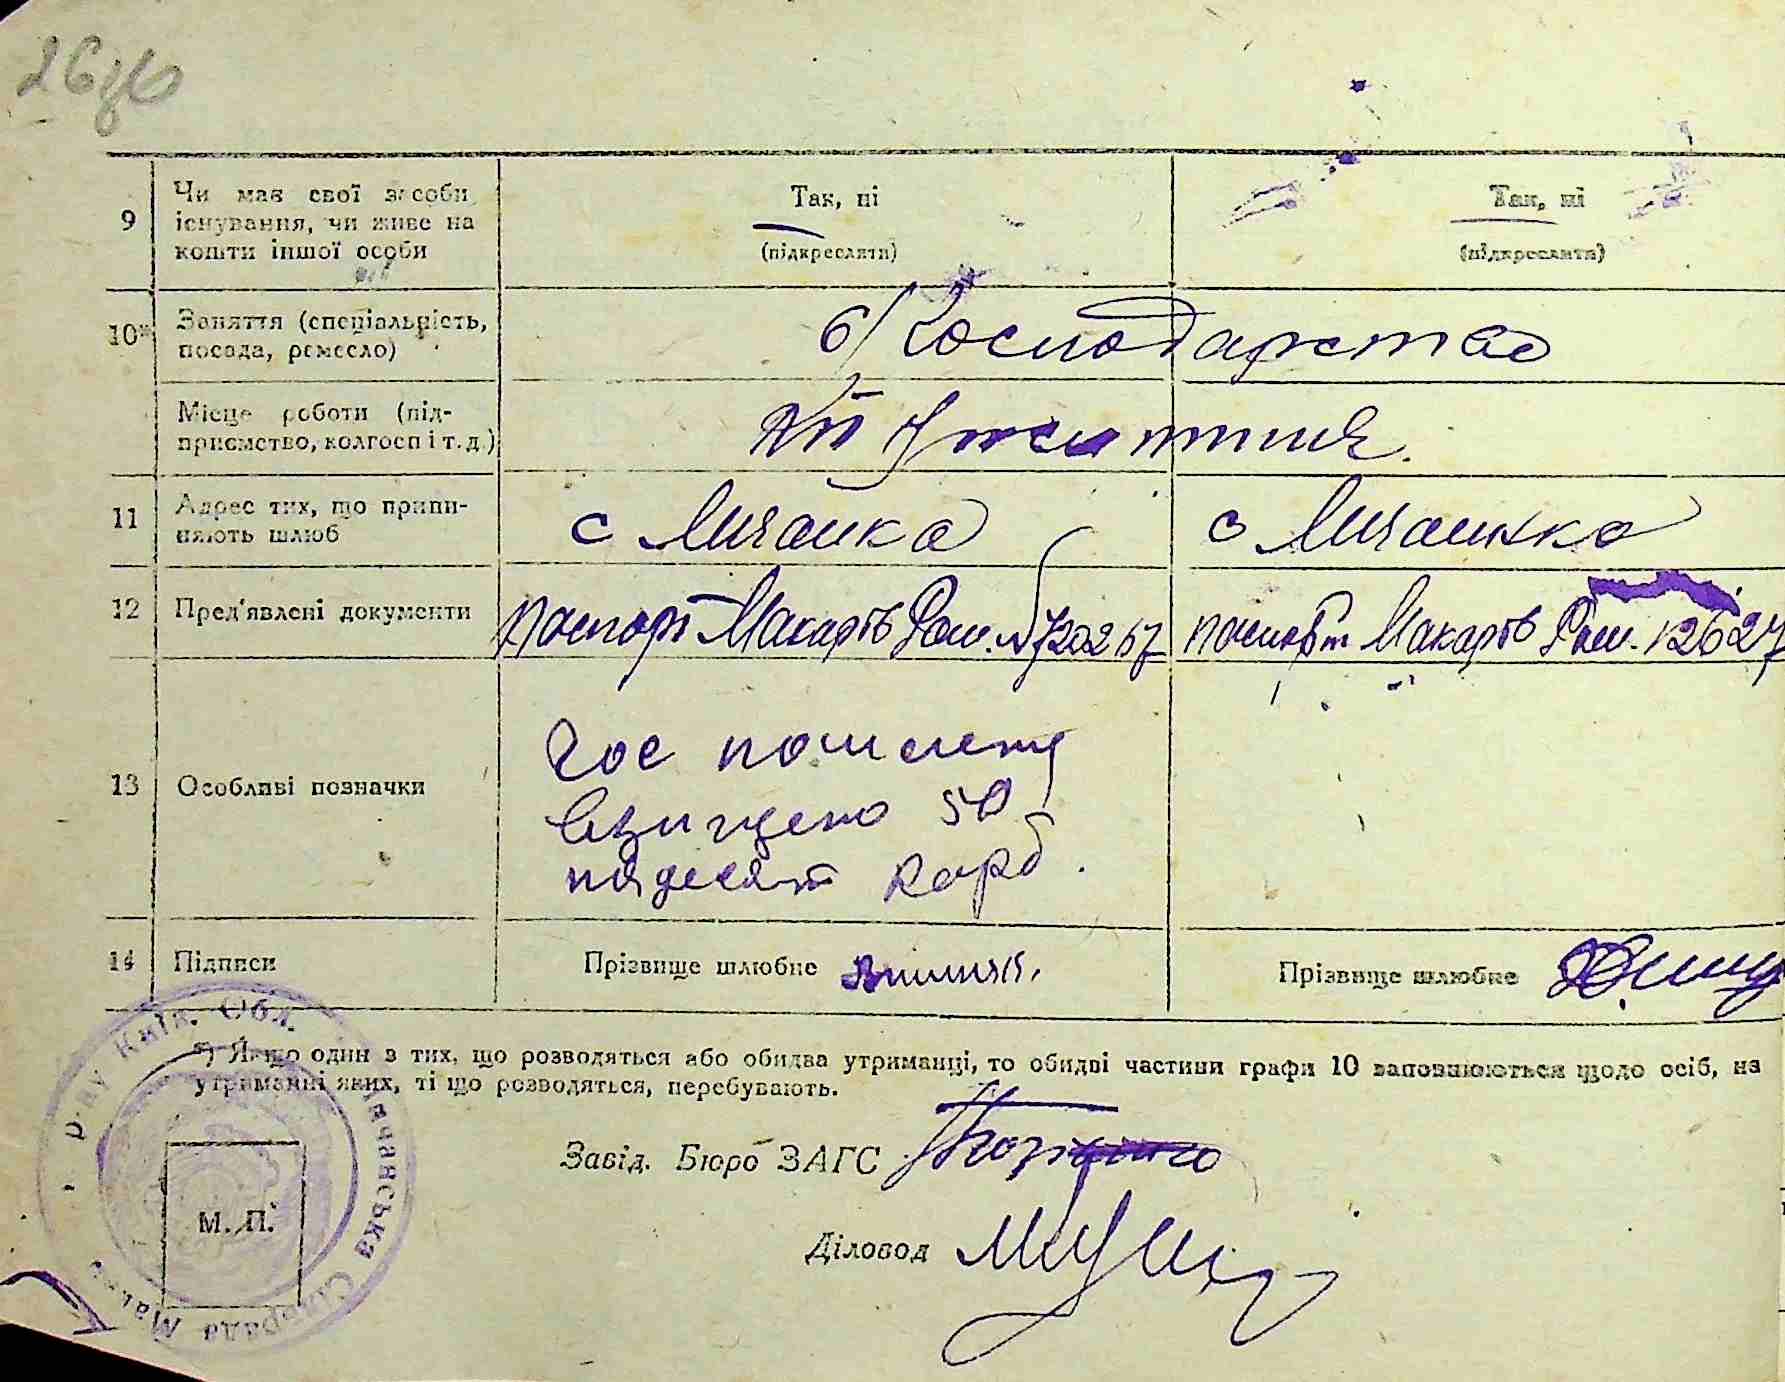 26
9 Чи має свої засоби існування, чи живе на кошти іншої особи
Так, ні
(підкреслити)
Так, ні
(підкреслити)
10* Заняття (спеціальність, посада, ремесло)
б/Господарство
Місце роботи (підприємство, колгосп і т. д.)
11 Адрес тих, що припиняють шлюб
с Личанка
с Личанка
12 Пред'явлені документи
паспорт Макарів Рай. № 720267
паспорт Макарів Рай. 12627
13 Особливі позначки
Гос пошлету
взищено 50
пядесят карб.
14 Підписи
Прізвище шлюбне
Прізвище шлюбне
*) Якщо один з тих, що розводяться або обидва утриманці, то обидві частини графи 10 заповнюються щодо осіб, на
утриманні яких, ті що розводяться, перебувають.
Завід. Бюро ЗАГС
Діловод
М. П.
р-ну Київ. Обл. Личанська Сільрада Мака